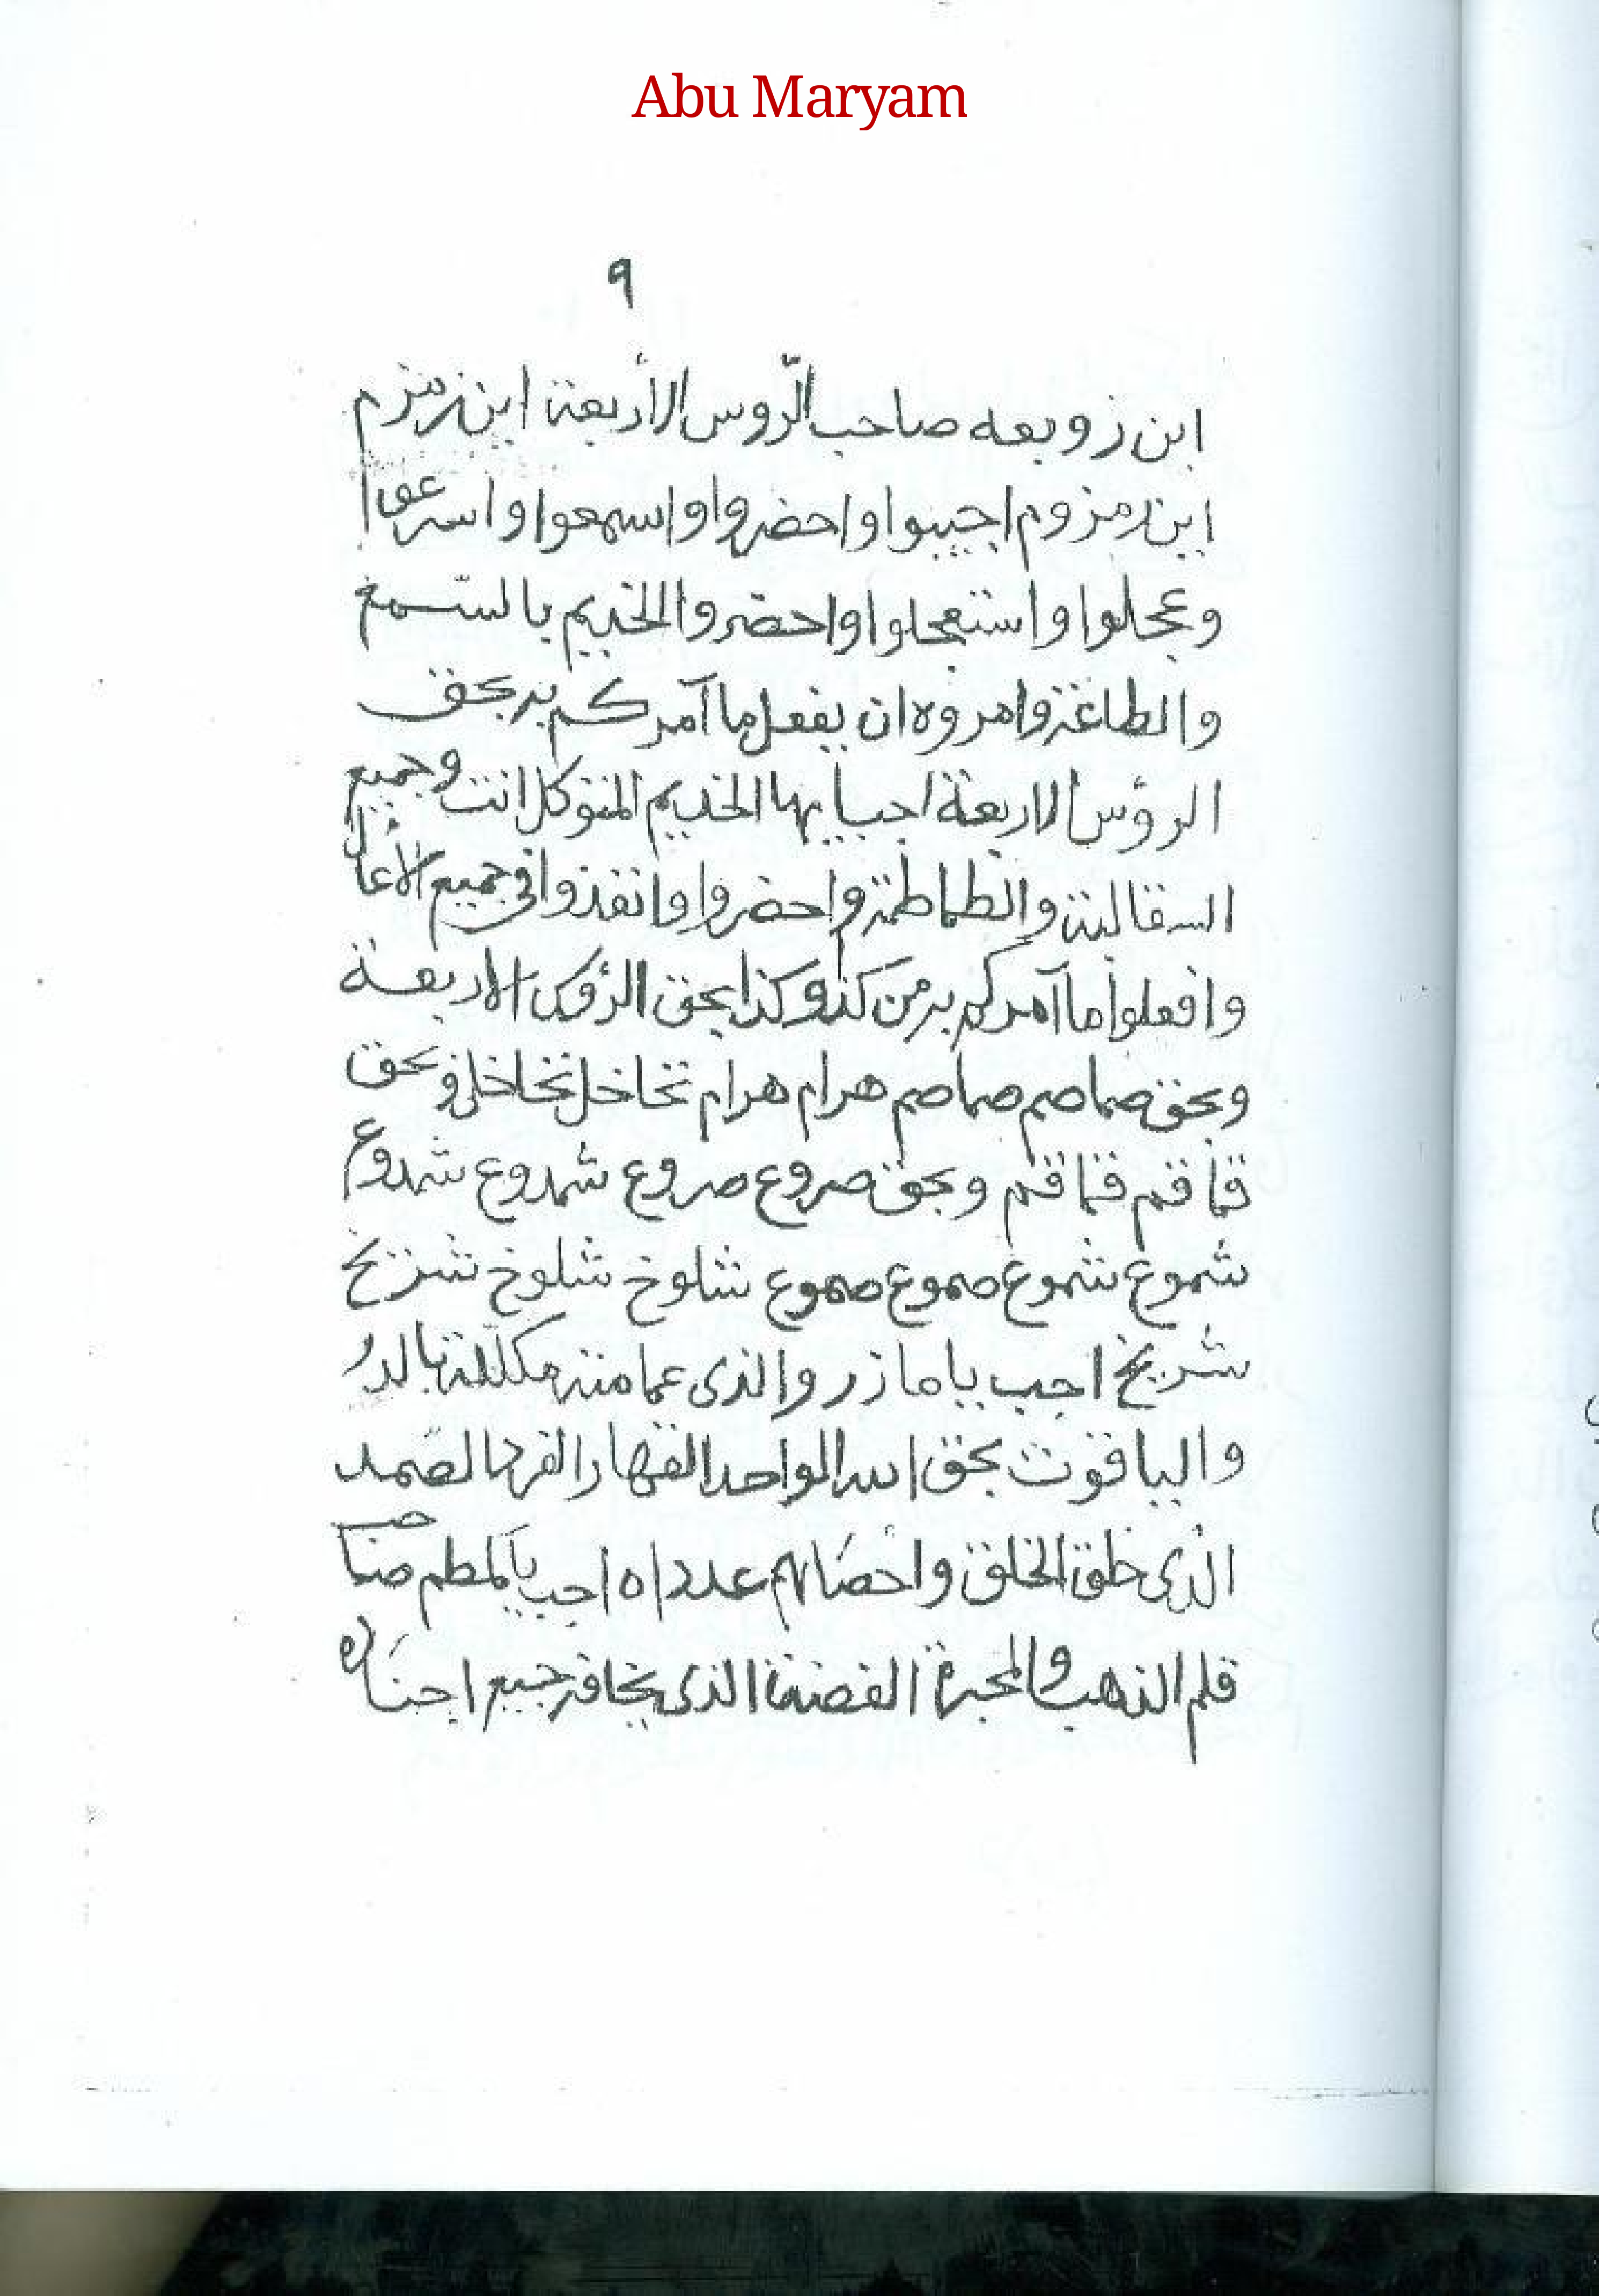 Abu Maryam
٩
ابن زوبعه صاحب الرّوس الأربعة اين زمزم
اين زمزوم اجيبوا واحضروا واسمعوا واسرعوا
وعجلوا واستعجلوا واحضروا الخديم بالسّمع
والطاعة وامروه ان يفعل ما آمركم به بحق
الرؤس الاربعة اجب ايها الخديم المتوكل انت وجميع
السقالبة والطماطمة واحضروا وانفذوا في جميع الأعمال
وافعلوا ما آمركم به من كذا وكذا بحق الرؤس الاربعة
وبحق صماصم صماصم هرام هرام تخاخل تخاخل وبحق
قماقم قماقم وبحق صروع صروع شمدوع شمدوع
شموع شموع صموع صموع شلوخ شلوخ شزيخ
شريخ اجب يا مازر والذى عمامته مكللة بالدر
والياقوت بحق الله الواحد القهار الفرد الصّمد
الّذى خلق الخلق واحصَاهم عددا ه اجب يا لمطم صَاحب
قلم الذهب والمحبرة الفضة الذى يخافه جميع اجنَاده